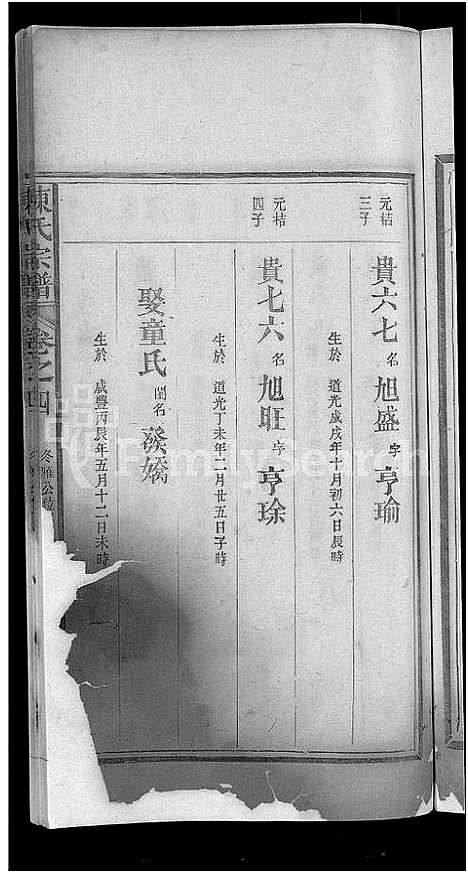 元桔三子
貴六七 名 旭盛 字 亨瑜
生於 道光戊戌年十月初六日辰時
元桔四子
貴七六 名 旭旺 字 亨琭
生於 道光丁未年二月廿五日子時
娶童氏 閨名 癸嬌
生於 咸豐丙辰年五月十二日未時
陳氏宗譜 卷之四